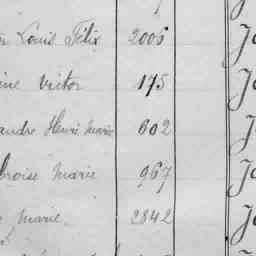 Louis Félix 2006 Jo
ine Victor 175 Jo
andre Henri Marie 602 Jo
broise Marie 967 Jo
e Marie 2842 Jo